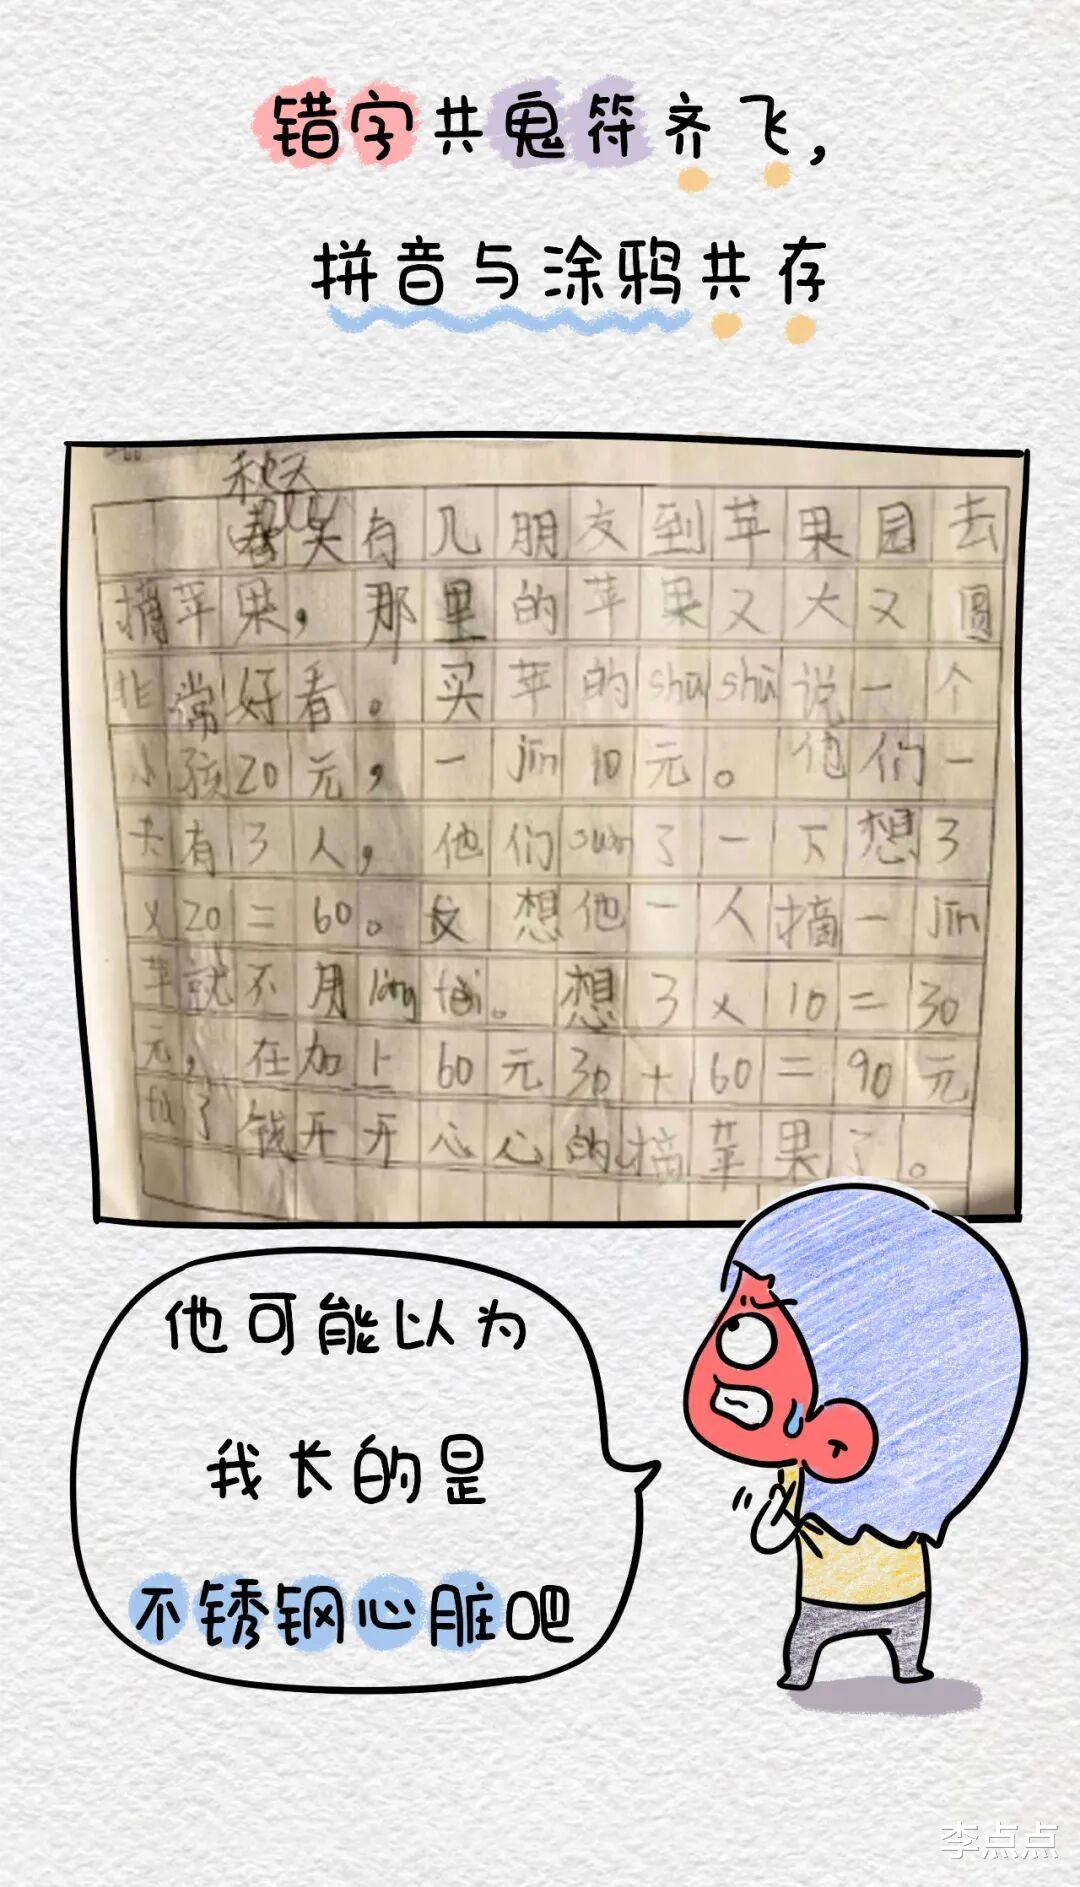 错字共鬼符齐飞，
拼音与涂鸦共存
秋天
春天有几朋友到苹果园去
摘苹果，那里的苹果又大又圆
非常好看。买苹的shūshu说一个
小孩20元，一jīn10元。他们一
共有3人，他们suàn了一下想3
×20=60。又想他一人摘一jīn
苹就不用làng fèi。想3×10=30
元，在加上60元30+60=90元
fù了钱开开心心的摘苹果了。
他可能以为
我长的是
不锈钢心脏吧
李点点